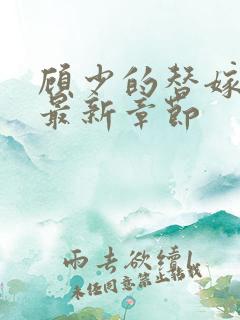 顾少的替嫁
最新章节
雨去欲续
未经同意禁止转载